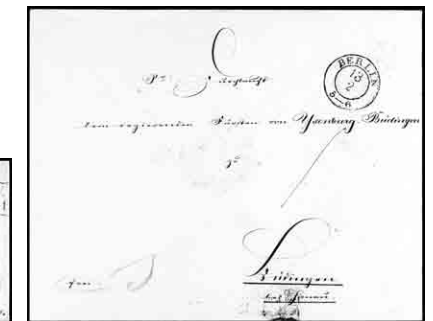 BERLIN
13
2
5-6
dem regierenden Fürsten von Ysenburg-Büdingen
zu
Büdingen
bei Hanau.